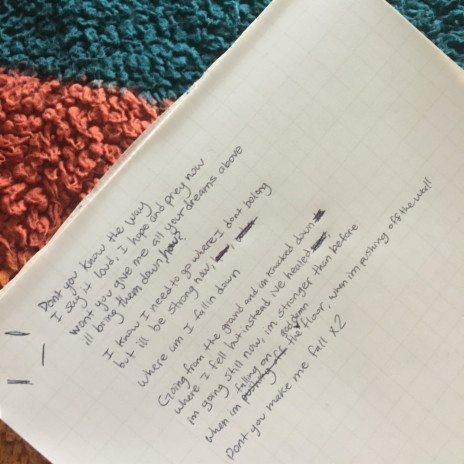 Dont you know the way
I say it loud, I hope and prey now
wont you give me all your dreams above
ill bring them down now?
I know I need to go where I dont belong
but ill be strong now,
where am I fallin down
Going from the ground and up knocked down
where I fell but instead ive healed
im going still now, im stronger than before
when im falling on goddamn the flour, when im pushing off the wall!
Dont you make me fall x2